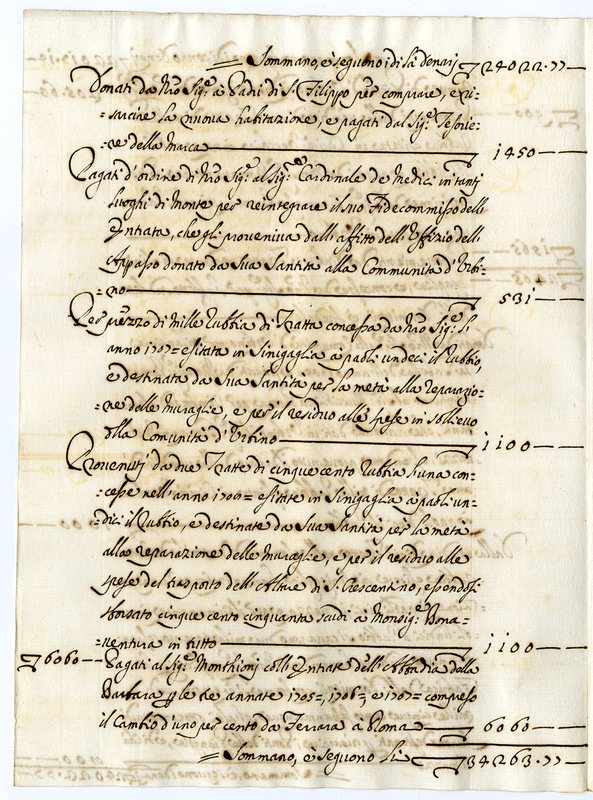 = Sommano, e seguono i di là denari 24022.77
Donati da Nro Sigre a Padri di S. Filippo per comprare, e ri-
:sarcire la nuova habitazione, e pagati dal Sigr Tesorie-
:re della Marca 1450
Pagati d'ordine di Nro Sigre al Sigr Cardinale de Medici in tanti
luoghi di Monte per reintegrare il suo Fidecommisso dell'
Entrata, che gli proveniva dall'affitto dell'Offizio dell'
Appasso donato da Sua Santità alla Communità d'Urbi-
:no 531
Per prezzo di mille Rubbia di Tratta concessa da Nro Sigre li
anno 1707= esitata in Sinigaglia à paoli undeci il Rubbio,
e destinata da Sua Santità per la metà alla reparazio-
:ne delle muraglie, e per il residuo alle spese in sollievo
della Comunità d'Urbino 1100
Provenuti da due Tratte di cinquecento Rubbia l'una con-
:cesse nell'anno 1700= esitate in Sinigaglia à paoli un-
:dici il Rubbio, e destinate da Sua Santità per la metà
alla reparazione delle Muraglie, e per il residuo alle
spese del trasporto dell'Altare di S. Crescentino, essendosi
sborsato cinquecento cinquanta scudi à Monsigre Bona-
:ventura in tutto 1100
6060 Pagati al Sigr Monthioni coll'Entrate dell'Abbadia della
Barbara per le tre annate 1705=, 1706=, e 1707= compreso
il Cambio d'uno per cento da Ferrara à Roma 6060
= Sommano, e seguono li 34263.77